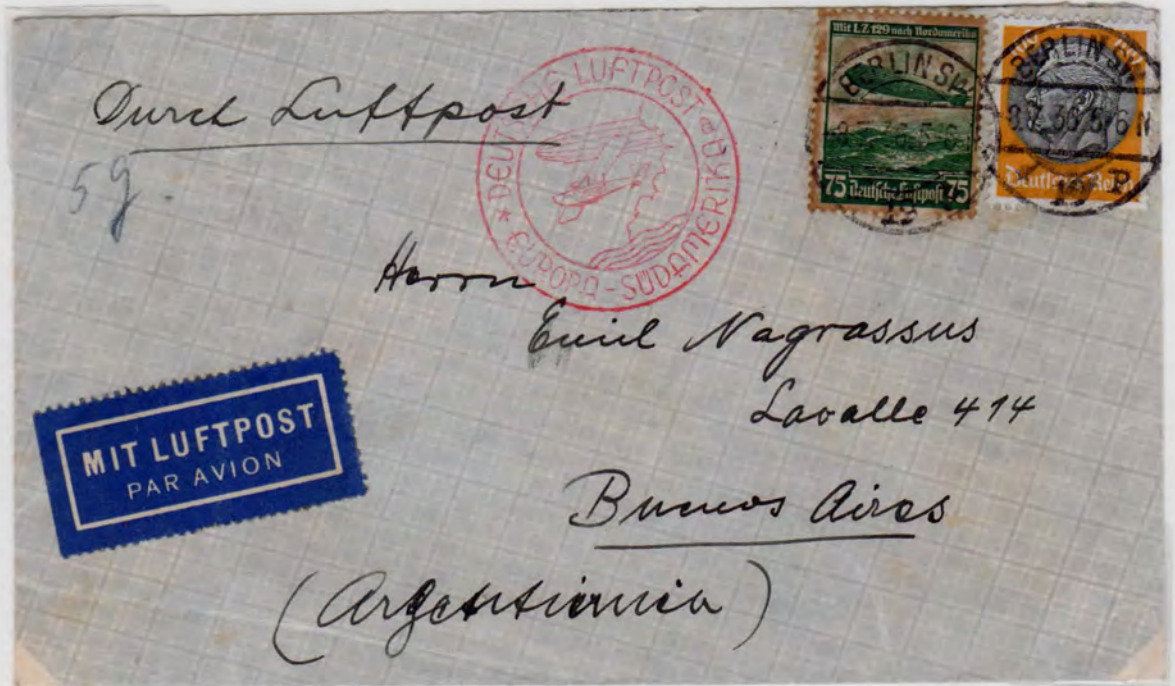 Durch Luftpost
5g.
DEUTSCHE LUFTPOST
EUROPA-SÜDAMERIKA
Mit LZ 129 nach Nordamerika
75 Deutsche Luftpost 75
BERLIN SW
19
BERLIN SW
19
Deutsches Reich
Herrn
Emil Nagrassus
Lavalle 414
Buenos Aires
(Argentinien)
MIT LUFTPOST
PAR AVION